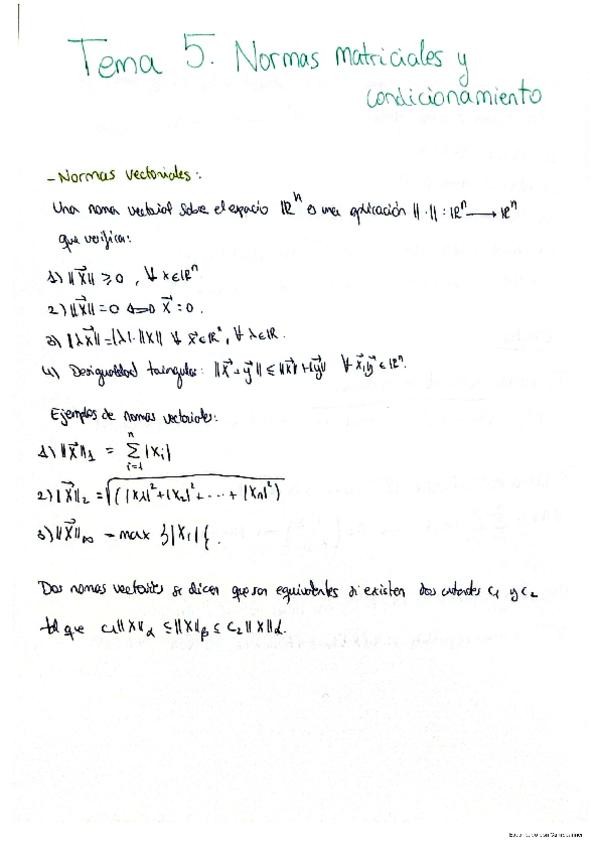 Tema 5. Normas matriciales y
condicionamiento
- Normas vectoriales:
Una norma vectorial sobre el espacio ℝⁿ es una aplicación ||·|| : ℝⁿ → ℝⁿ
que verifica:
1) ||x⃗|| ≥ 0 , ∀ x ∈ ℝⁿ
2) ||x⃗|| = 0 ⟺ x⃗ = 0.
3) ||λx⃗|| = |λ|·||x|| ∀ x⃗ ∈ ℝⁿ, ∀ λ ∈ ℝ.
4) Desigualdad triangular: ||x⃗ + y⃗|| ≤ ||x⃗|| + ||y⃗|| ∀ x⃗, y⃗ ∈ ℝⁿ.
Ejemplos de normas vectoriales:
1) ||x⃗||₁ = Σᵢ₌₁ⁿ |xᵢ|
2) ||x⃗||₂ = √(|x₁|² + |x₂|² + ... + |xₙ|²)
3) ||x⃗||∞ = max {|xᵢ|}.
Dos normas vectoriales se dicen que son equivalentes si existen dos c₁ y c₂
tal que c₁||x||α ≤ ||x||β ≤ c₂||x||α.